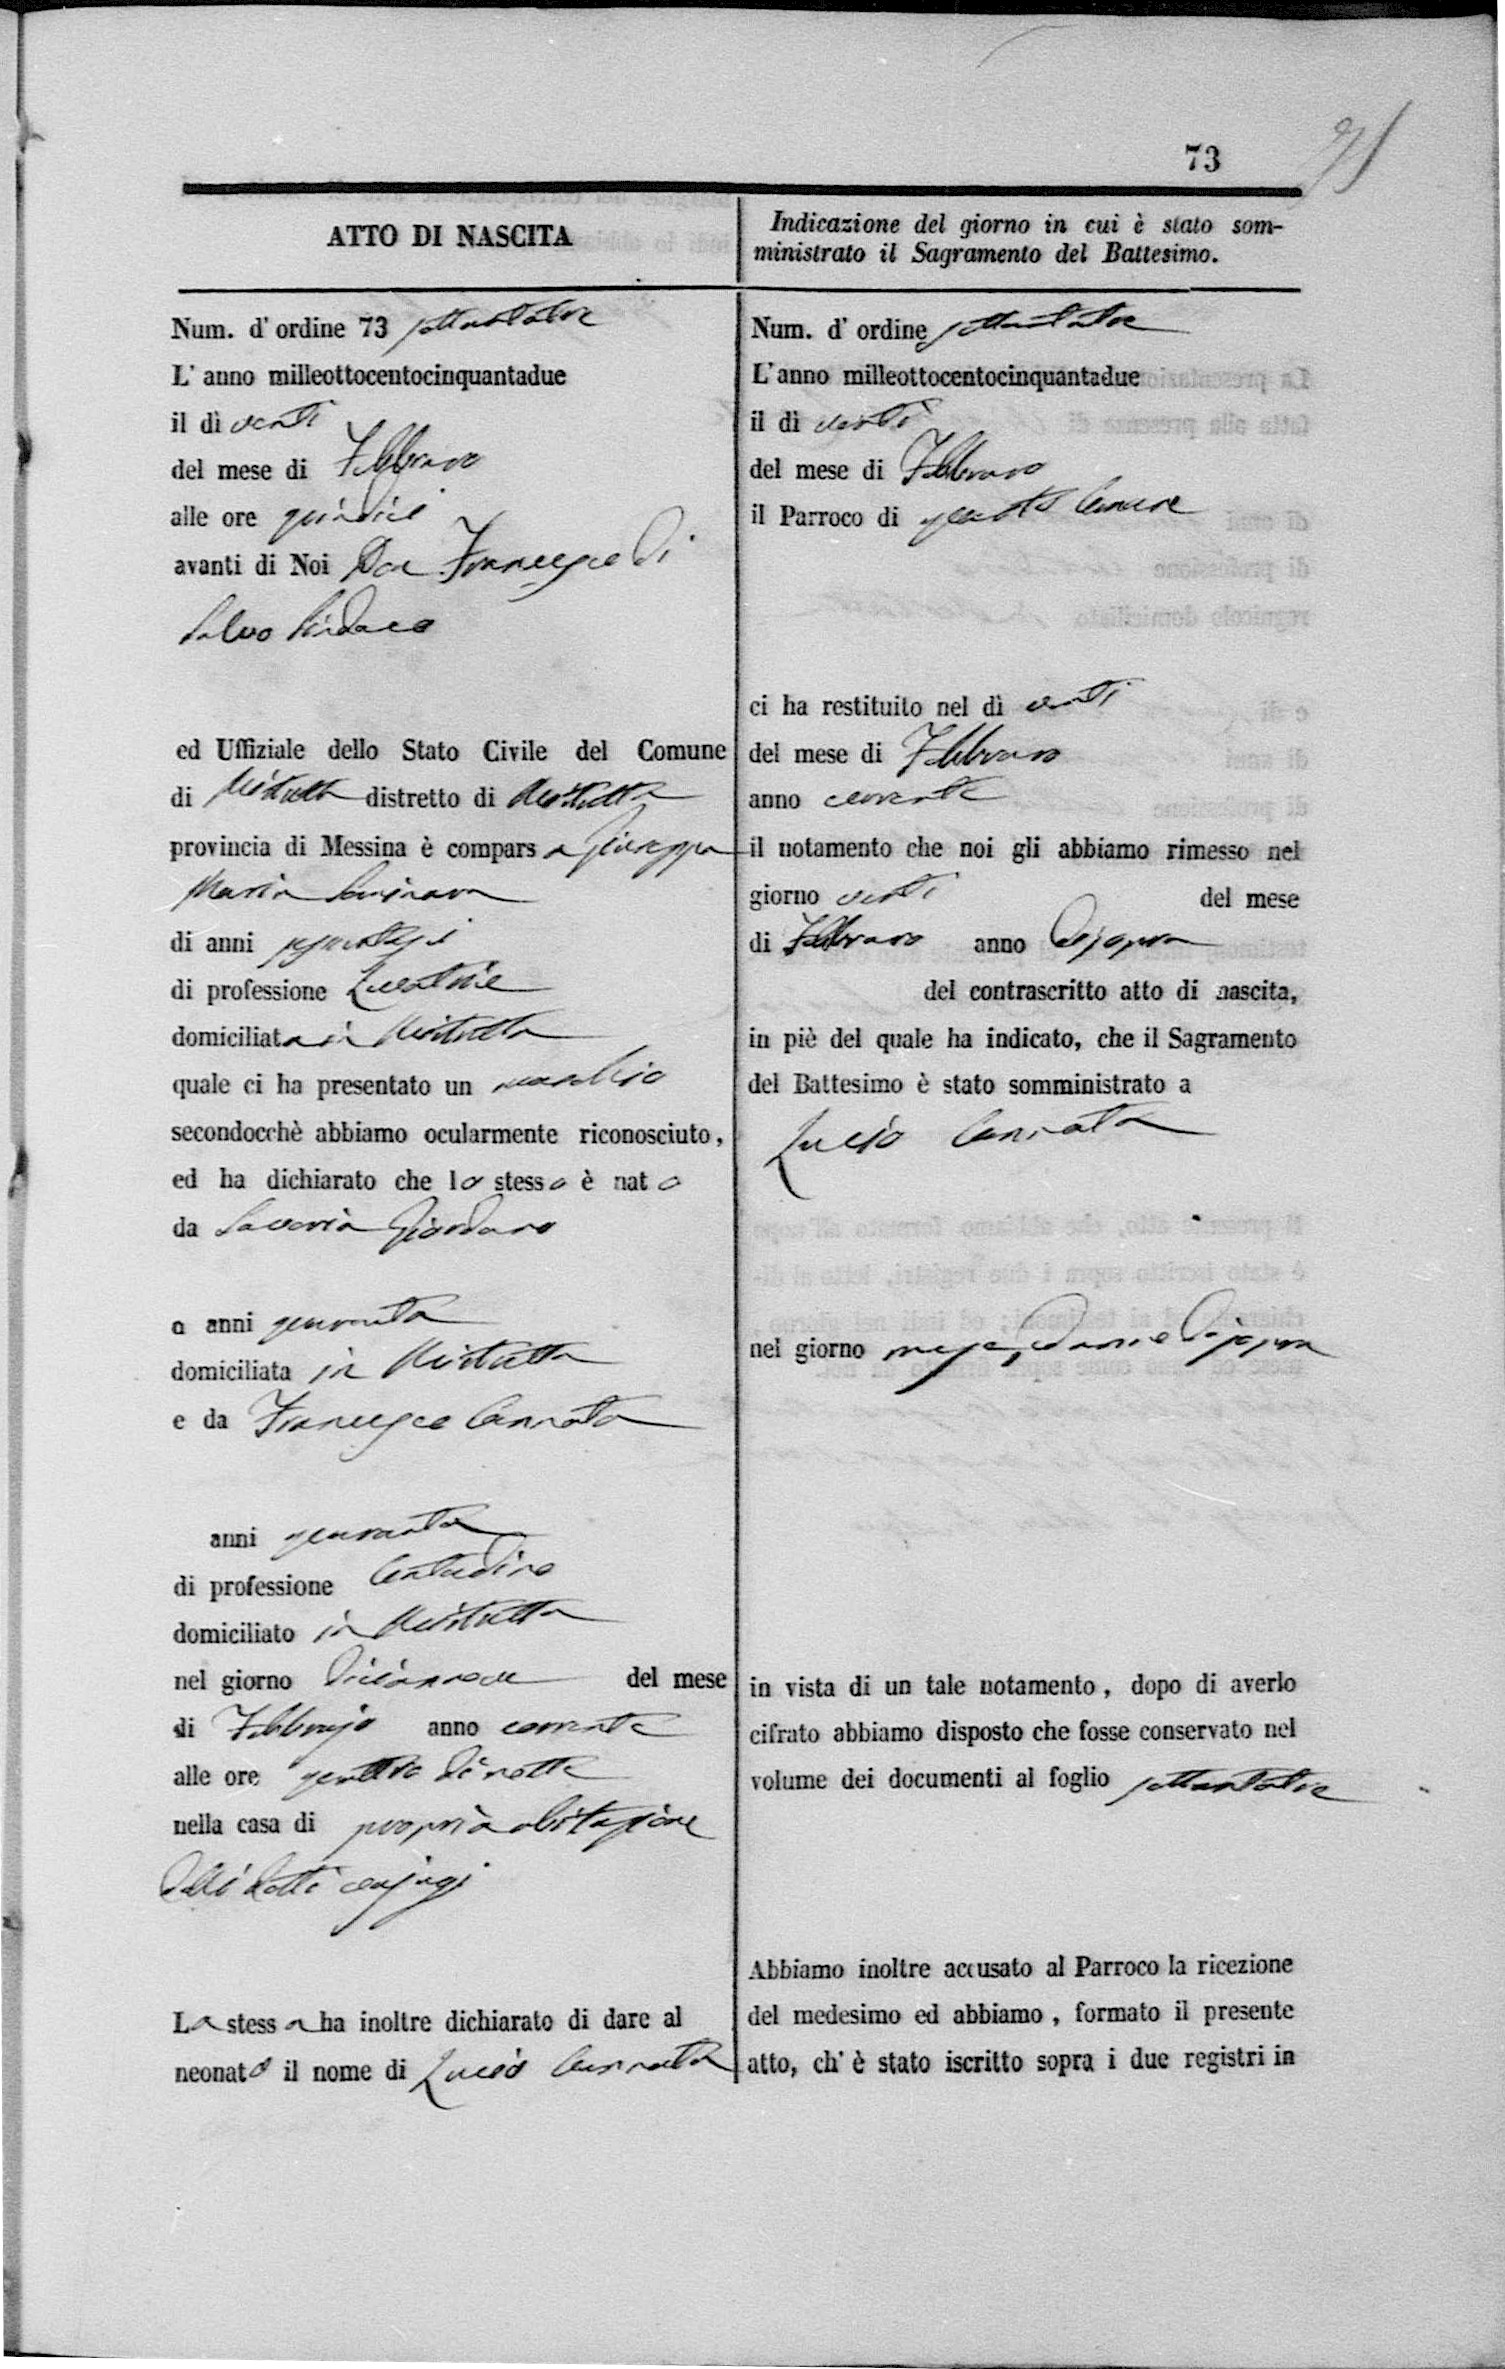 73
ATTO DI NASCITA
Num. d' ordine 73 settantatre
L' anno milleottocentocinquantadue
il dì venti
del mese di Febbraro
alle ore quindici
avanti di Noi Don Francesco Di
Salvo Sindaco
ed Uffiziale dello Stato Civile del Comune
di Mistretta distretto di Mistretta
provincia di Messina è comparsa Giuseppa
Maria
di anni
di professione Levatrice
domiciliata in Mistretta
quale ci ha presentato un maschio
secondocchè abbiamo ocularmente riconosciuto,
ed ha dichiarato che lo stesso è nato
da Saveria Giordano
a anni quaranta
domiciliata in Mistretta
e da Francesco Cannata
anni quaranta
di professione Contadino
domiciliato in Mistretta
nel giorno diciannove del mese
di Febbrajo anno corrente
alle ore quattro di notte
nella casa di propria abitazione
delli detti conjugi
La stessa ha inoltre dichiarato di dare al
neonato il nome di Lucio Cannata
Indicazione del giorno in cui è stato som-
ministrato il Sagramento del Battesimo.
Num. d' ordine settantatre
L' anno milleottocentocinquantadue
il dì venti
del mese di Febbraro
il Parroco di questo Comune
ci ha restituito nel dì venti
del mese di Febbraro
anno corrente
il notamento che noi gli abbiamo rimesso nel
giorno venti del mese
di Febbraro anno di sopra
del contrascritto atto di nascita,
in piè del quale ha indicato, che il Sagramento
del Battesimo è stato somministrato a
Lucio Cannata
nel giorno mese ed anno di sopra
in vista di un tale notamento, dopo di averlo
cifrato abbiamo disposto che fosse conservato nel
volume dei documenti al foglio settantatre
Abbiamo inoltre accusato al Parroco la ricezione
del medesimo ed abbiamo, formato il presente
atto, ch' è stato iscritto sopra i due registri in